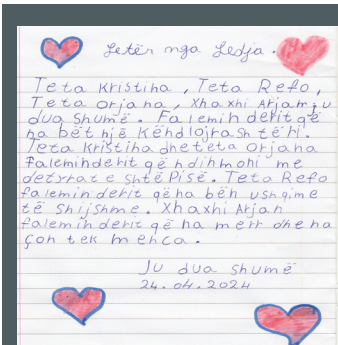 Letër nga Ledja.
Teta Kristina, Teta Refo,
Teta Orjana, Xhaxhi Arjan, ju
dua shumë. Falemin derit që
na bët një Kënd lojrash të ri.
Teta Kristina dhe teta Orjana
faleminderit që ndihmoni me
detyrat e shtëPisë. Teta Refo
falemin derit që na bën ushqime
të shijshme. Xhaxhi Arjan
falemin derit që na merr dhe na
çon tek menca.
Ju dua shumë
24.04.2024